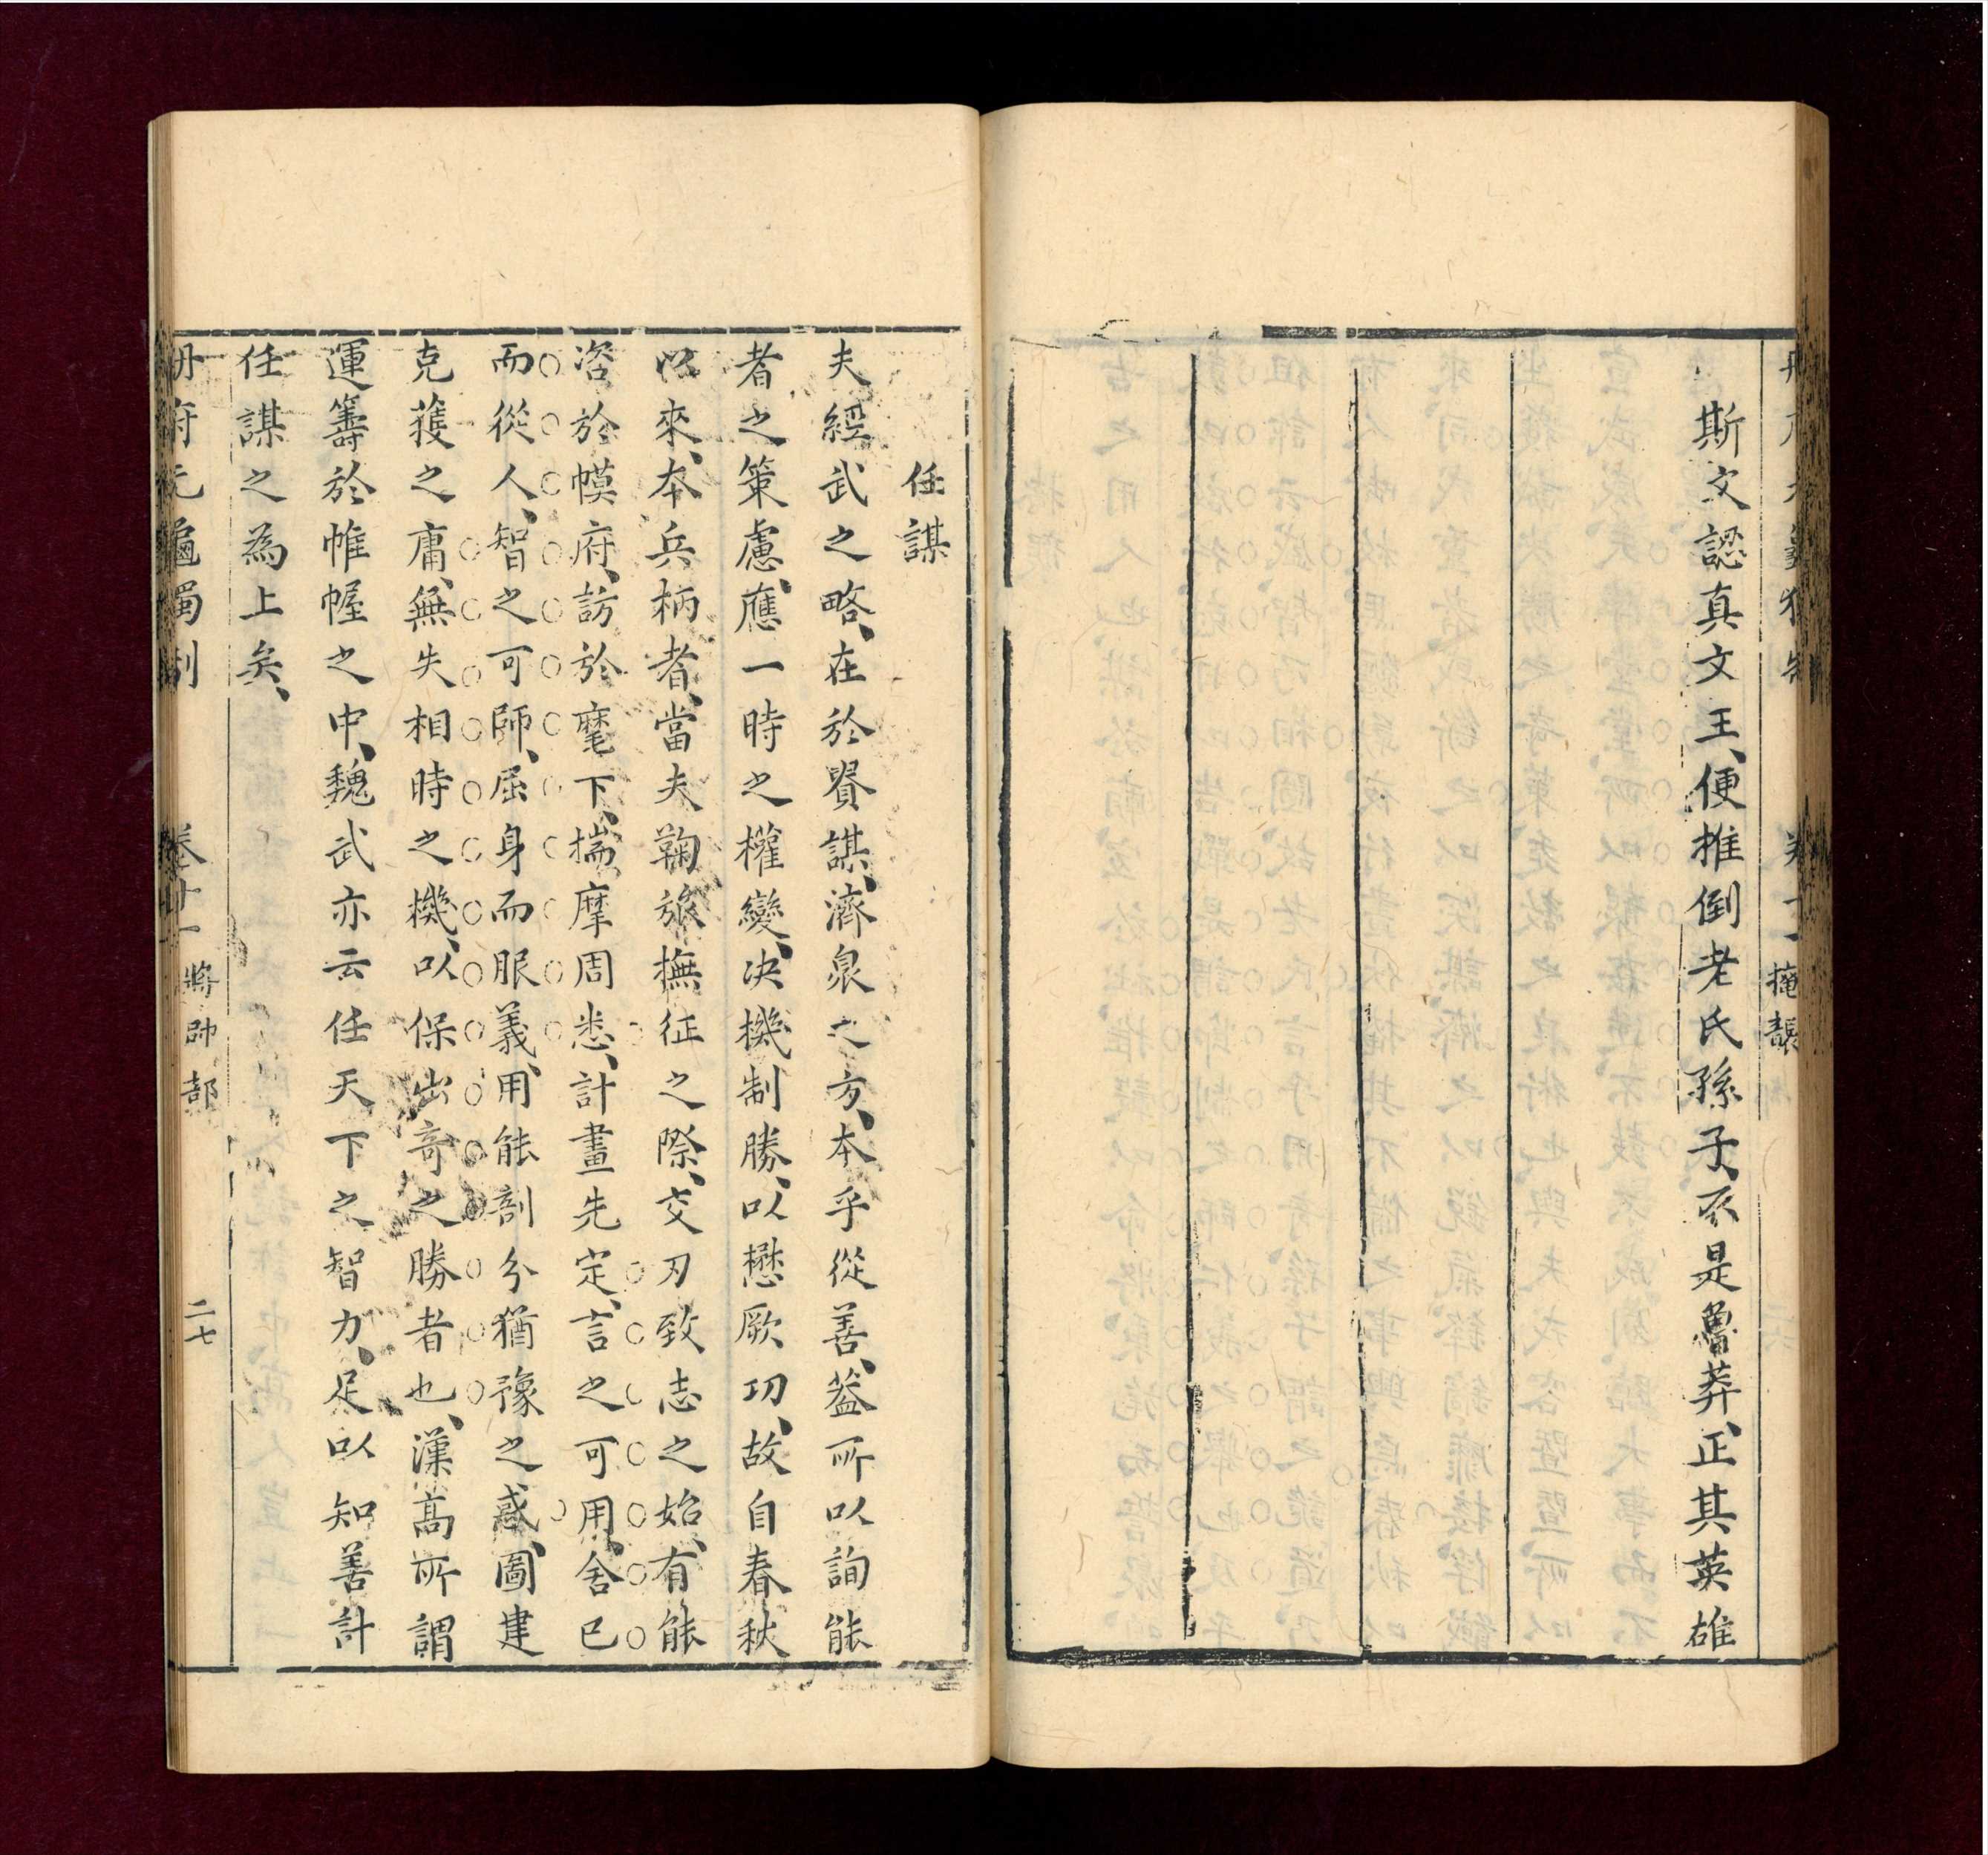 斯文認真文王、便推倒老氏孫子、不是魯莽、正其英雄
掩襲
任謀
夫經武之略、在於賢謀、濟衆之方、本乎從善、葢所以詢能
者之策慮、應一時之權變、决機制勝、以懋厥功、故自春秋
以來、本兵柄者、當夫鞠旅撫征之際、交刃致志之始、有能
咨於幙府、訪於麾下、揣摩周悉、計畫先定、言之可用、舍已
而從人、智之可師、屈身而服義、用能剖分猶豫之惑、圖建
克獲之庸、無失相時之機、以保出奇之勝者也、漢高所謂
運籌於帷幄之中、魏武亦云任天下之智力、足以知善計
任謀之為上矣、
冊府元龜獨制 卷十一 將帥部 二七